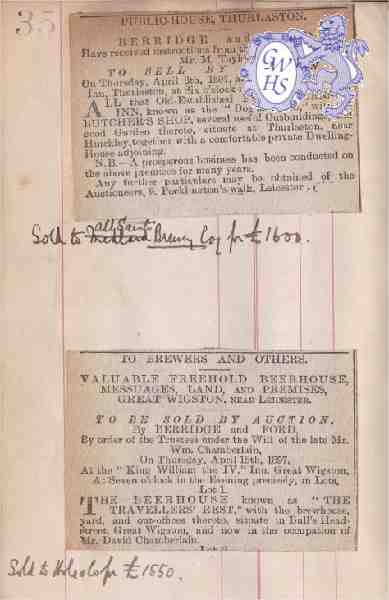 35
PUBLIC-HOUSE, THURLASTON.
BERRIDGE and
Have received instructions from the
Mr. M. Tayl
TO SELL BY
On Thursday, April 8th, 1897, a
Inn, Thurlaston, at Six o'clock
ALL that Old-Established
INN, known as the "Do wi
BUTCHER'S SHOP, several useful Outbuildings,
good Garden thereto, situate at Thurlaston, near
Hinckley, together with a comfortable private Dwelling-
House adjoining.
N.B.—A prosperous business has been conducted on
the above premises for many years.
Any further particulars may be obtained of the
Auctioneers, 9, Pocklington's-walk, Leicester.
GWHS
All Saints
Sold to Midland Brewery Coy for £1600.
TO BREWERS AND OTHERS.
VALUABLE FREEHOLD BEERHOUSE,
MESSUAGES, LAND, AND PREMISES,
GREAT WIGSTON, NEAR LEICESTER.
TO BE SOLD BY AUCTION,
By BERRIDGE and FORD,
By order of the Trustees under the Will of the late Mr.
Wm. Chamberlain,
On Thursday, April 15th, 1897,
At the "King William the IV." Inn, Great Wigston,
At Seven o'clock in the Evening precisely, in Lots.
Lot 1.
THE BEERHOUSE known as "THE
TRAVELLERS' REST," with the brewhouse,
yard, and out-offices thereto, situate in Bull's Head-
street, Great Wigston, and now in the occupation of
Mr. David Chamberlain.
Sold to for £1550.